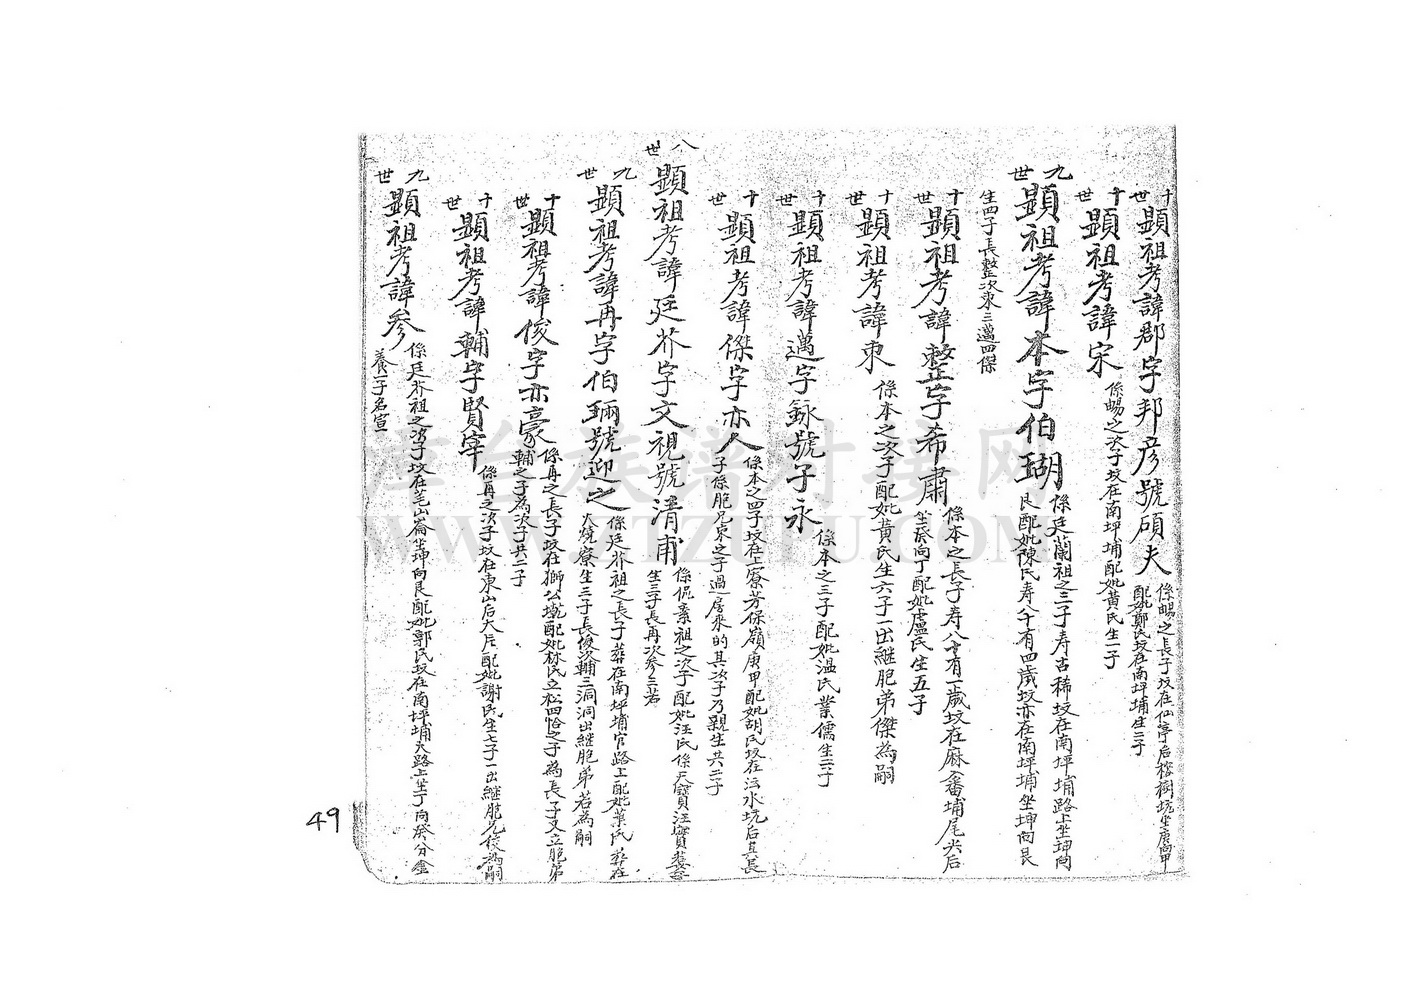 十世
顯祖考諱郡字邦彥號碩夫
係暘之長子坟在仙亭后榕樹坑坐庚向甲
配妣鄭氏坟在南坪埔生三子
十世
顯祖考諱宋
係暘之次子坟在南坪埔配妣黃氏生一子
九世
顯祖考諱本字伯瑚
係廷蘭祖之三子寿古稀坟在南坪埔路上坐坤向
艮配妣陳氏寿八十有四歲坟亦在南坪埔坐坤向艮
生四子長整次束三邁四傑
十世
顯祖考諱整字希肅
係本之長子寿八十有一歲坟在麻畬埔尾尖后
坐癸向丁配妣盧氏生五子
十世
顯祖考諱束
係本之次子配妣黃氏生六子一出継胞弟傑為嗣
十世
顯祖考諱邁字錄號子永
係本之三子配妣温氏業儒生三子
十世
顯祖考諱傑字亦人
係本之四子坟在上寮芳保嶺庚甲配妣胡氏坟在污水坑后其長
子係胞兄束之子過房來的其次子乃親生共二子
八世
顯祖考諱廷芥字文視號清甫
係侃素祖之次子配妣汪氏係天寶汪寶
生三子長再次參三若
九世
顯祖考諱再字伯瑂號迎之
係廷芥祖之長子葬在南坪埔官路上配妣葉氏葬在
火燒寮生三子長俊次輔三洞洞出継胞弟若為嗣
十世
顯祖考諱俊字亦豪
係再之長子坟在獅公配妣林氏立松四恰之子為長子又立胞弟
輔之子為次子共二子
十世
顯祖考諱輔字賢宰
係再之次子坟在東山后大片配妣謝氏生七子一出継胞兄俊為嗣
九世
顯祖考諱參
係廷芥祖之次子坟在羌山崙坐坤向艮配妣郭氏坟在南坪埔大路上坐丁向癸分金
養一子名宣
49
津台族譜对接网
WWW.ZTZUPU.COM